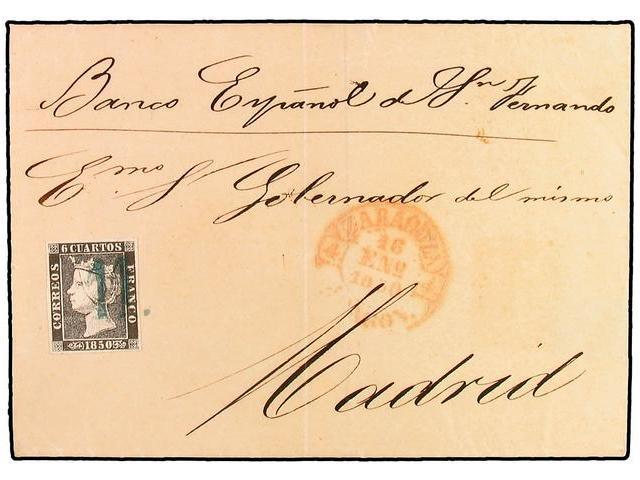 Banco Español de Sn. Fernando
Emo Sr Gobernador del mismo
6 CUARTOS
CORREOS
FRANCO
1850
ZARAGOZA
16
ENO
Madrid